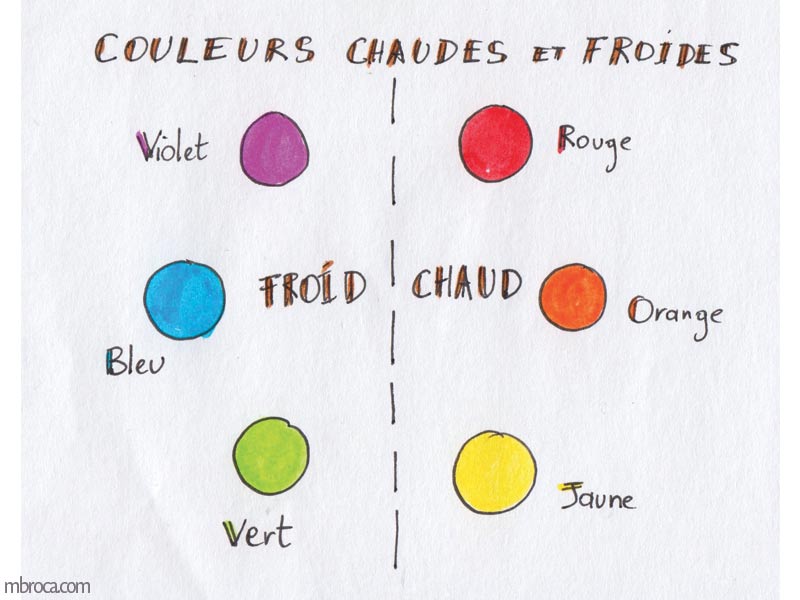 COULEURS CHAUDES ET FROIDES
Violet
Rouge
FROID
CHAUD
Orange
Bleu
Jaune
Vert
mbroca.com